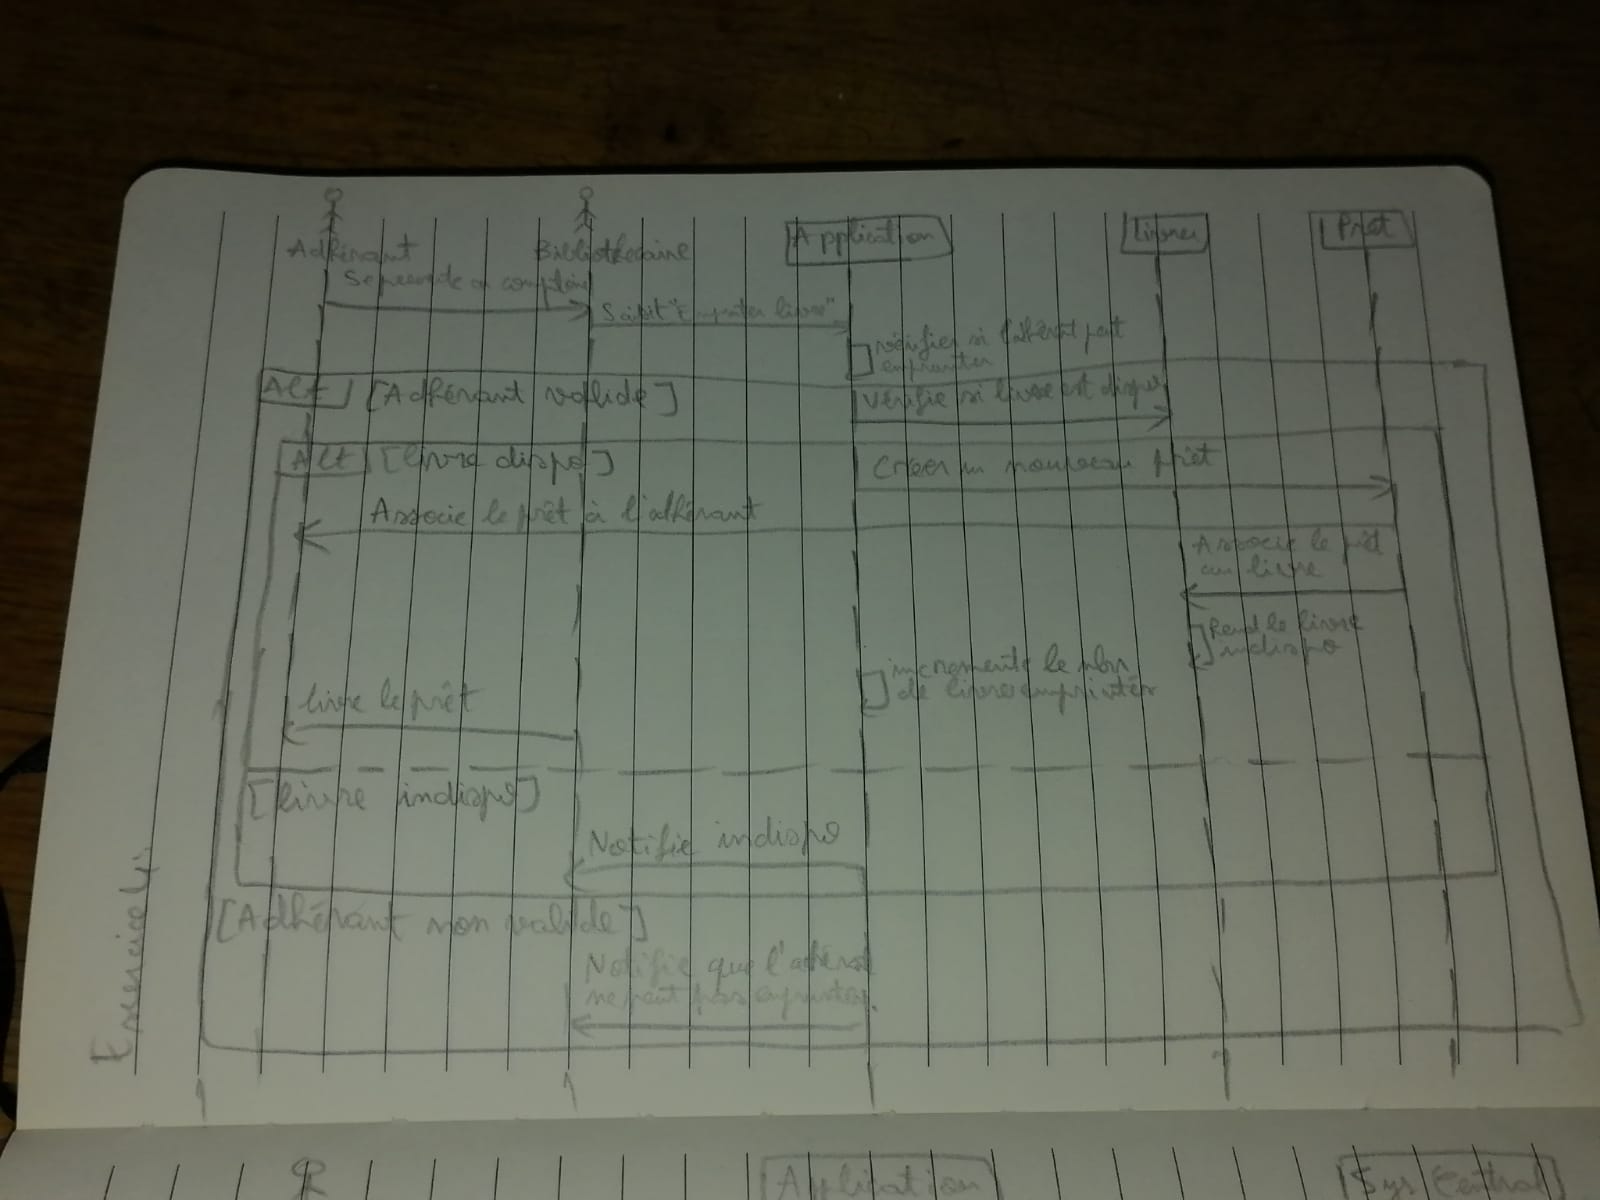 Adhérant
Bibliothécaire
Application
Livres
Prêt
Se presente au comptoire
Saisit "Emprunter livre"
vérifier si l'adhérant peut
emprunter
Alt [Adhérant valide]
Vérifie si livre est dispo
Alt [livre dispo]
Créer un nouveau prêt
Associe le prêt à l'adhérant
Associe le prêt
au livre
Rend le livre
indispo
incremente le nbr
de livres empruntés
livre le prêt
[livre indispo]
Notifie indispo
[Adhérant non valide]
Notifie que l'adhérant
ne peut pas emprunter.
Exercice 4:
Application
Sys Central